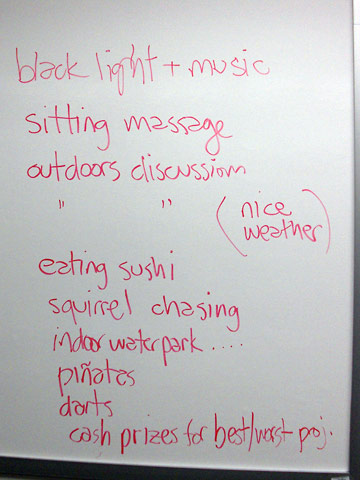 black light + music
sitting massage
outdoors discussion
" " (nice
weather)
eating sushi
squirrel chasing
indoor waterpark.....
piñatas
darts
cash prizes for best/worst proj.